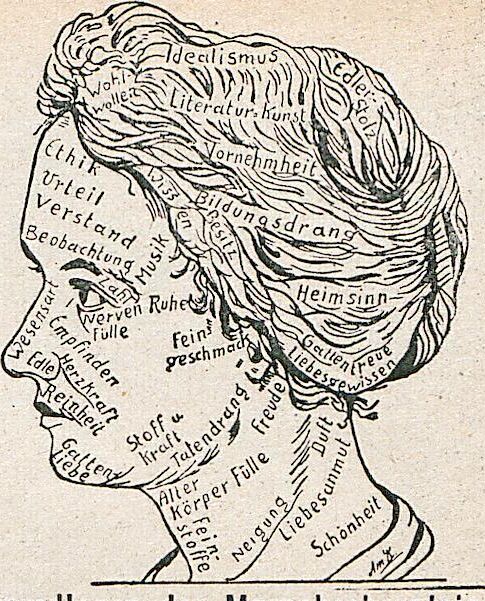 Idealismus
Wohl-
wollen
Edler
Stolz
Literatur-Kunst
Vornehmheit
Ethik
Urteil
Verstand
Beobachtung
Wissen
Bildungsdrang
Besitz
Musik
Zahl
Heimsinn
Nerven Ruhe
Fülle
Fein-
geschmack
Gattentreue
Liebesgewissen
Wesensart
Empfinden
Edle
Herzkraft
Reinheit
Stoff u
Kraft
Tatendrang
Freude
Gatten
liebe
Alter
Körper Fülle
Fein-
stoffe
Neigung
Duft
Liebesanmut
Schönheit